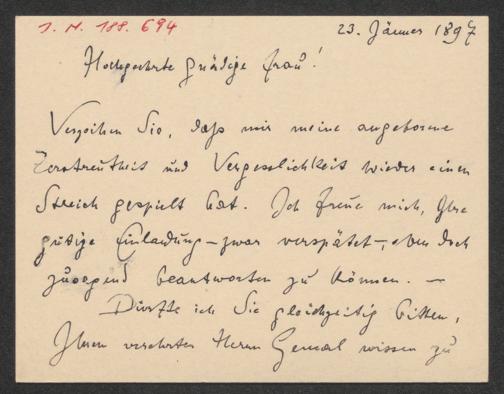 J. N. 188.694
23. Jänner 1897
Hochgeehrte gnädige Frau!
Verzeihen Sie, daß mir meine angeborene
Zerstreutheit und Vergesslichkeit wieder einen
Streich gespielt hat. Ich freue mich, Ihre
gütige Einladung – zwar verspätet –, aber doch
zusagend beantworten zu können. —
Dürfte ich Sie gleichzeitig bitten,
Ihren verehrten Herrn Gemal wissen zu